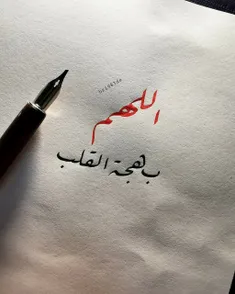 اللهم
بهجة القلب